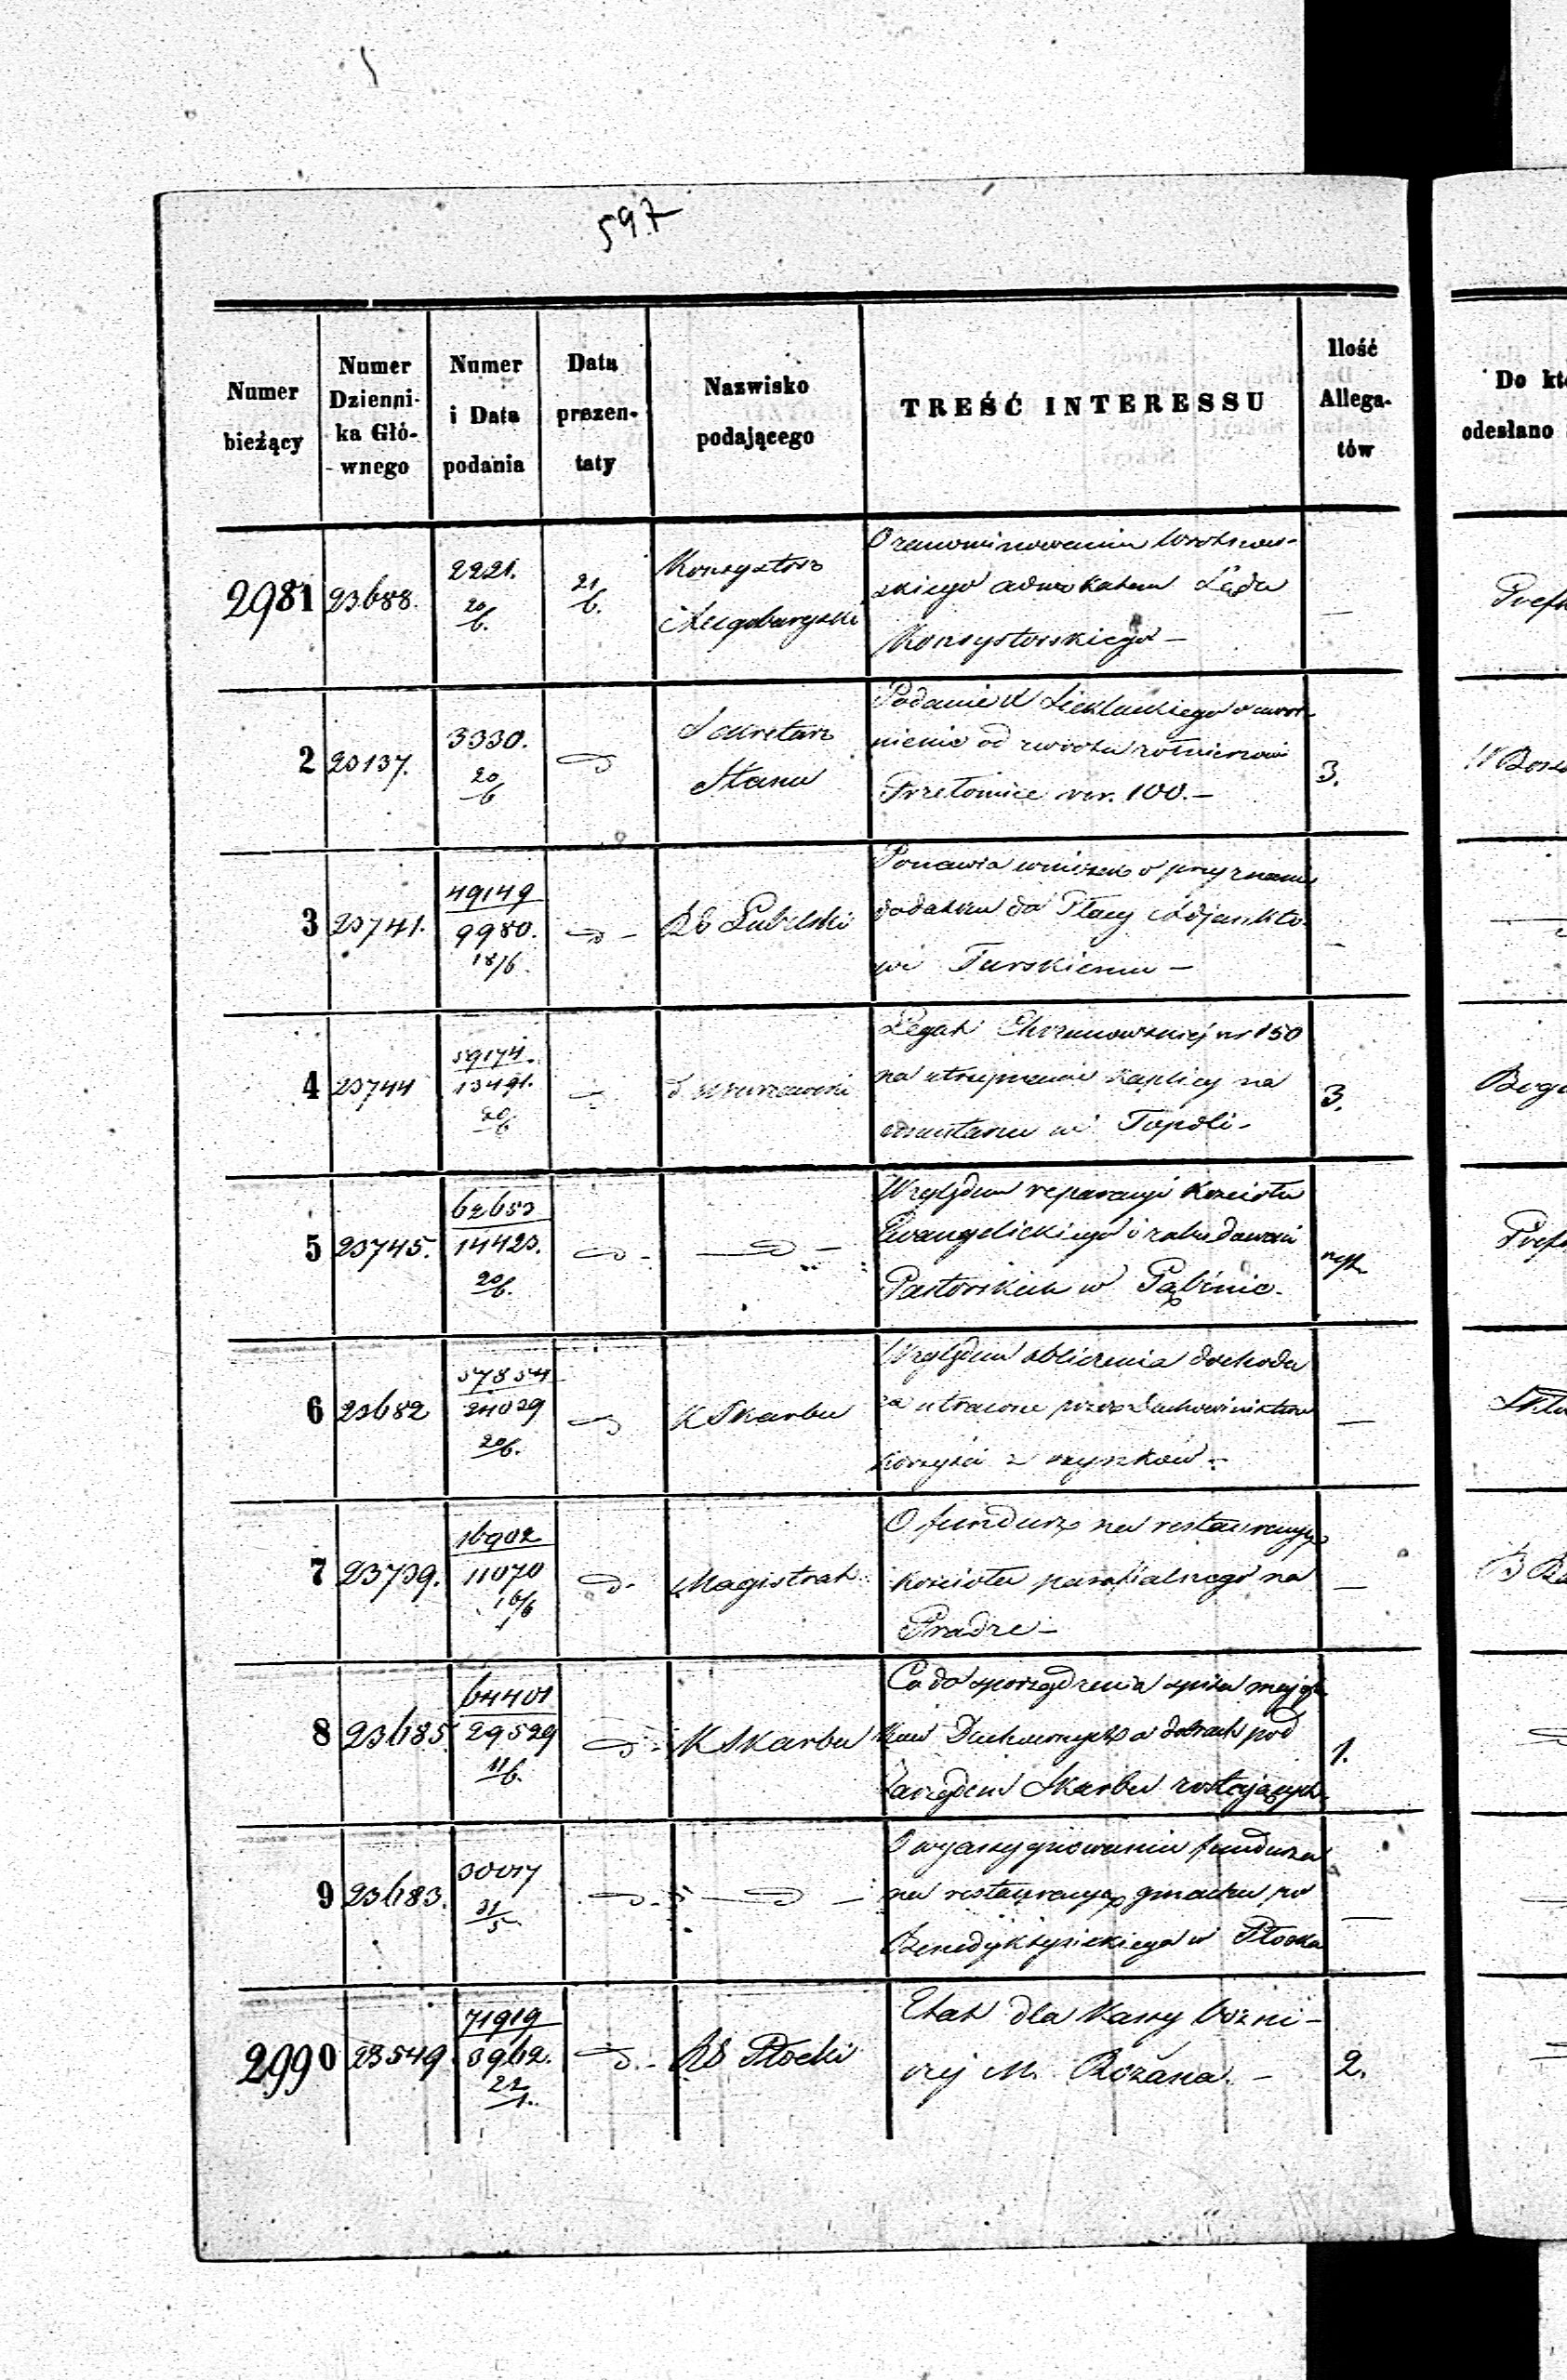 597
Numer bieżący | Numer Dzienni- ka Głó- wnego | Numer i Data podania | Data prezen- taty | Nazwisko podającego | TREŚĆ INTERESSU | Ilość Allega- tów | Do odesłano
2981 | 23688. | 2221. 20/6. | 21/6. | Konsystorz Augsburgski | O zanominowaniu
skiego adwokatem Sądu
Konsystorskiego —
2 | 23137. | 3330. 20/6 | Sekretarz Stanu | Podanie
nienie od zwrotu żołnierzowi
rsr. 100. — | 3.
3 | 23741. | 49149 9980. 18/6. | RG Lubelski | Ponawia wniosek o przyznanie
dodatku do Płacy Adjunkto-
wi Turskiemu —
4 | 23744 | 59174. 13491. 20/6 | Legat Chrzanowskiej rs 150
na utrzymanie kaplicy na
cmentarzu w Topoli — | 3.
5 | 23745. | 62653 14423. 20/6. | Względem reparacyi Kościoła
Ewangelickiego i zabudowań
Pastorskich w Gąbinie.
6 | 23682 | 57854 24029 20/6. | K Skarbu | Względem obliczenia dochodu
za utracone przez Duchowieństwo
korzyści z szynków —
7 | 23739. | 16902 11070 16/6 | Magistrat | O fundusz na restauracyę
kościoła parafialnego na
Pradze —
8 | 23685. | 64401 29529 11/6. | K Skarbu | Co do sporządzenia spisu mająt-
ków Duchownych a dobrach pod
Zarządem Skarbu zostających. | 1.
9 | 23683. | 30017 31/5 | O wyassygnowanie funduszu
na restauracyę gmachu po
Benedyktyńskiego w Płocku
2990 | 23549. | 71919 3962. 22/1. | RG Płocki | Etat dla Kassy Bożni-
czej M. Różana. — | 2.